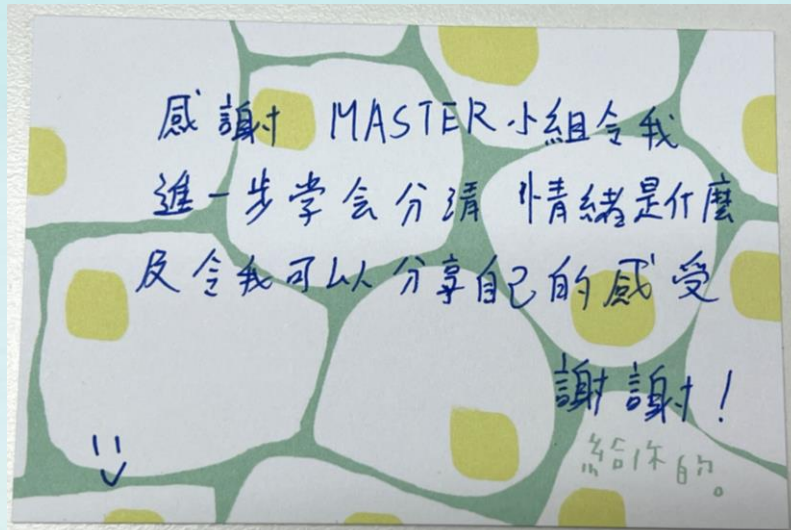 感謝 MASTER小組令我
進一步学会分清 情緒是什麼
及令我可以分享自己的感受
謝謝！
給你的。